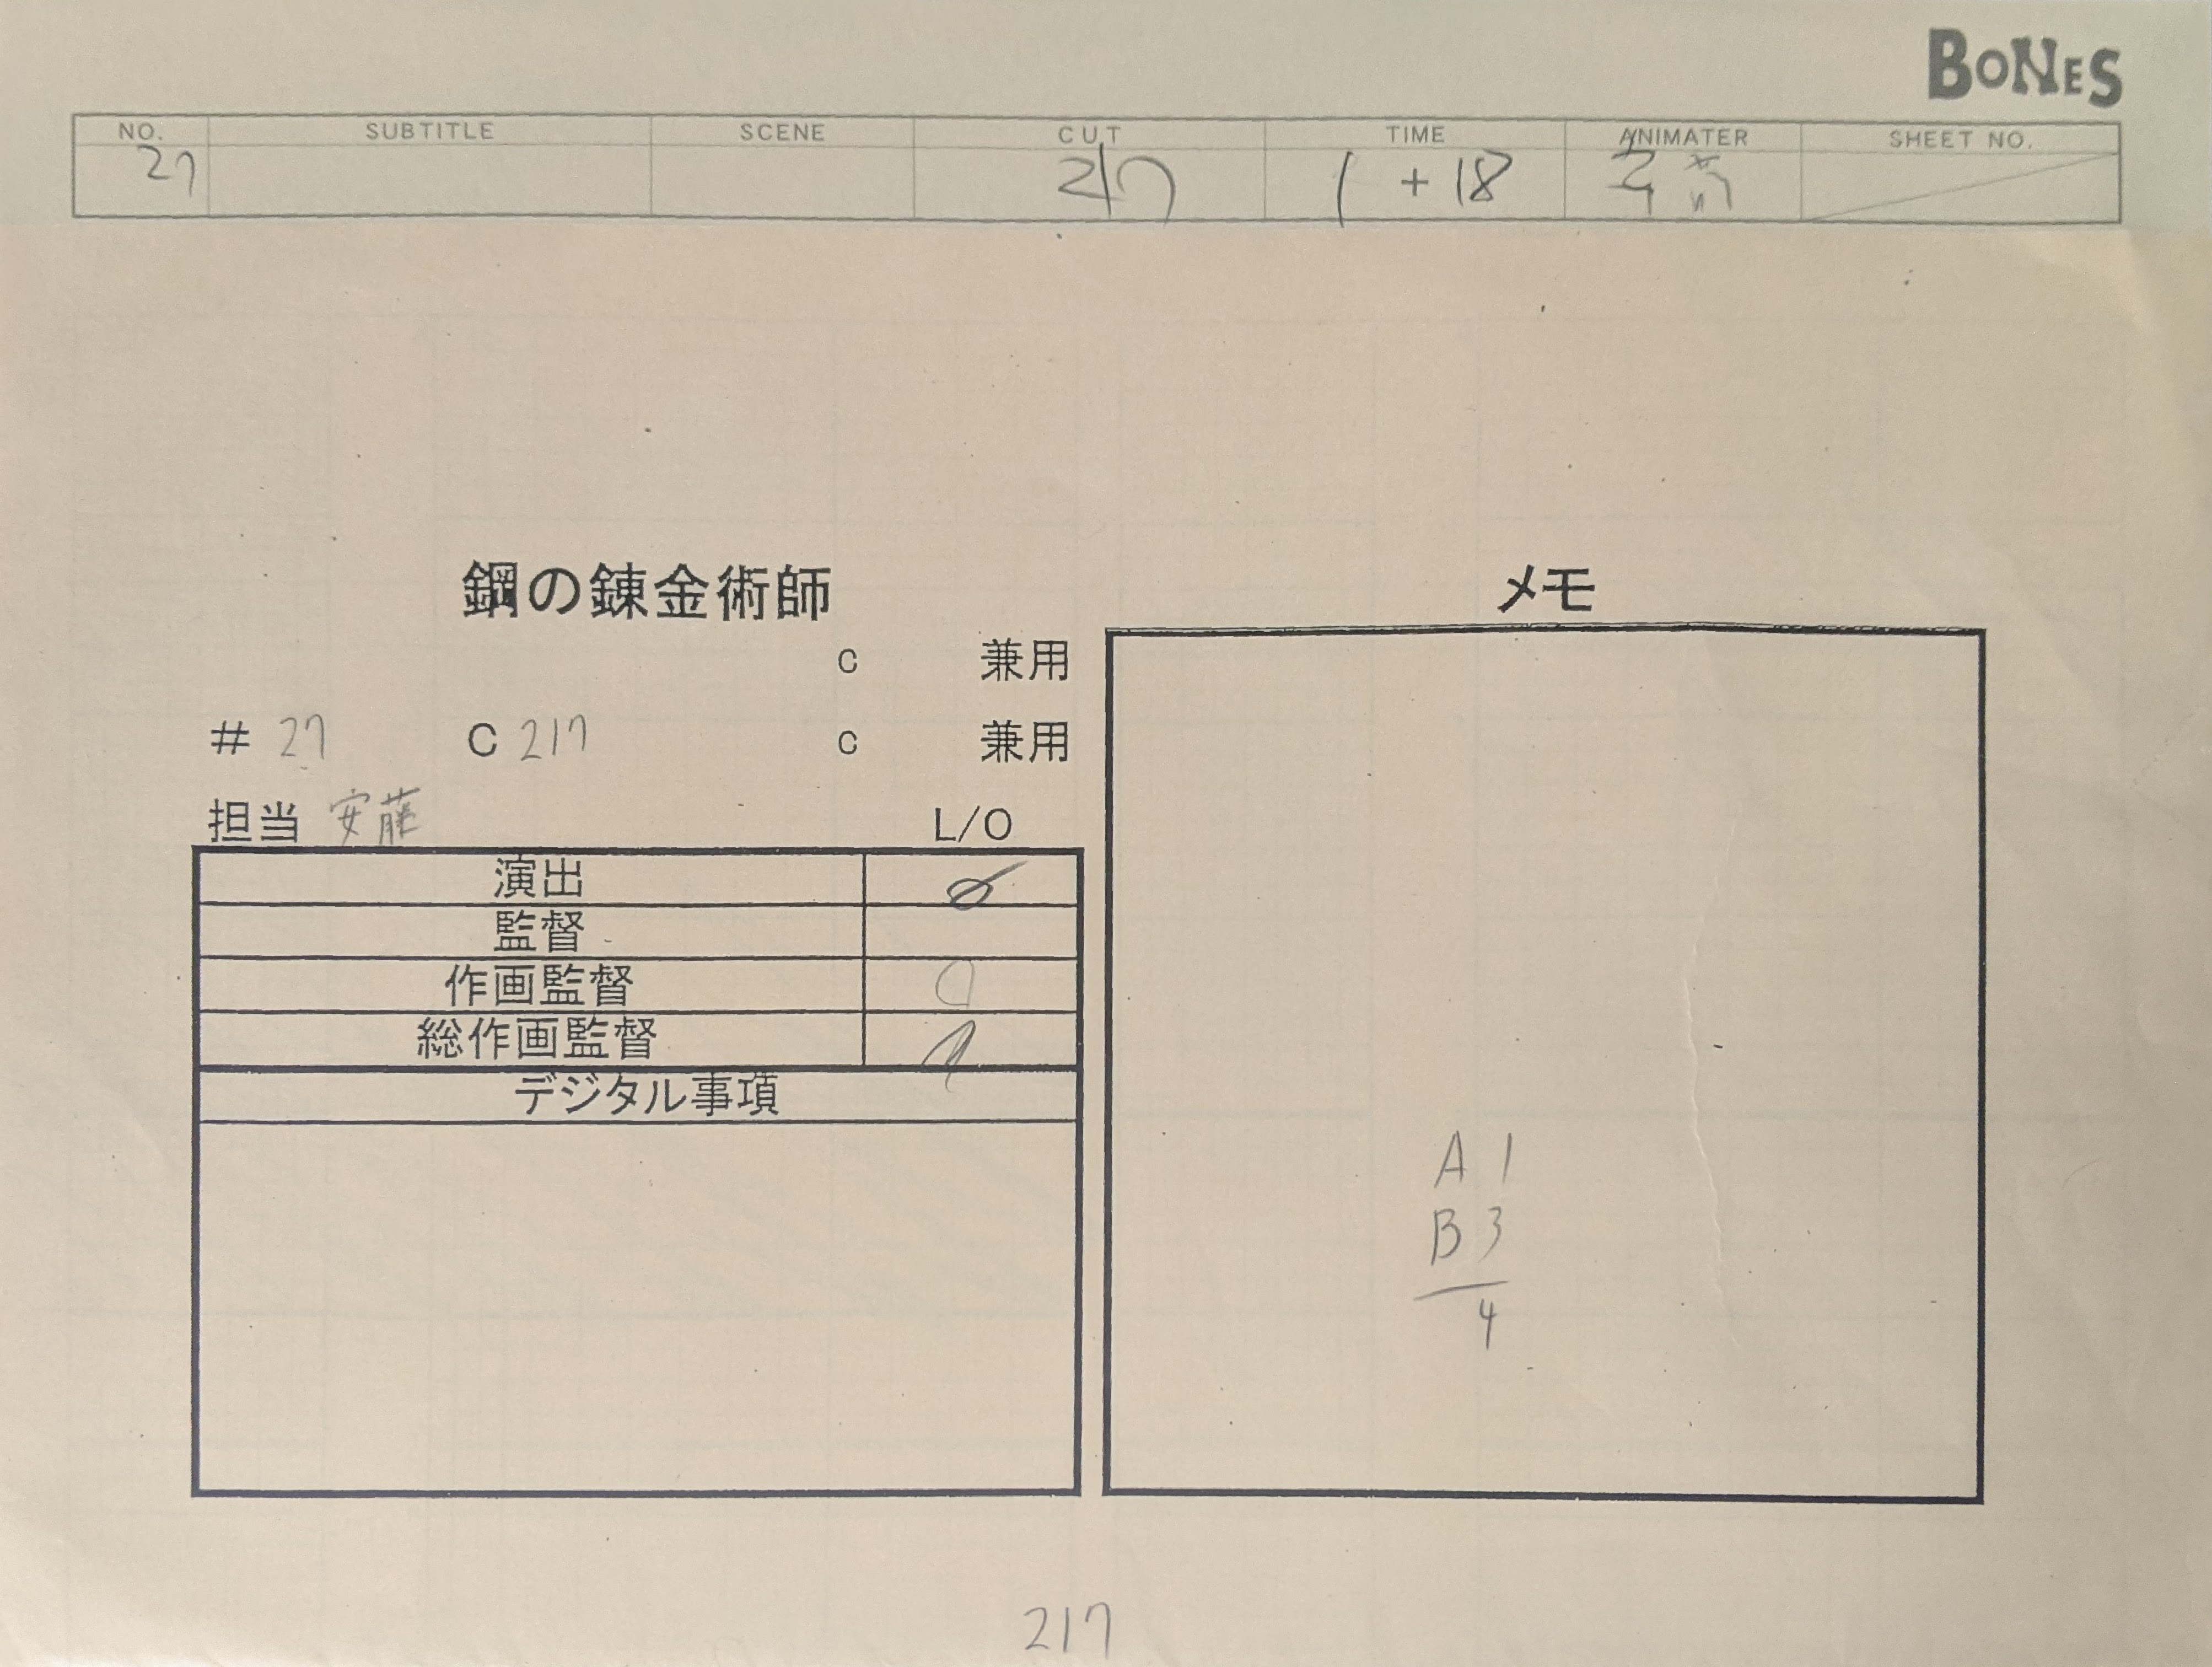 BONES
NO. SUBTITLE SCENE CUT TIME ANIMATER SHEET NO.
27 217 1 + 18 安藤
鋼の錬金術師
メモ
c 兼用
# 27 C 217 c 兼用
担当 安藤 L/O
演出
監督
作画監督
総作画監督
デジタル事項
A 1
B 3
4
217